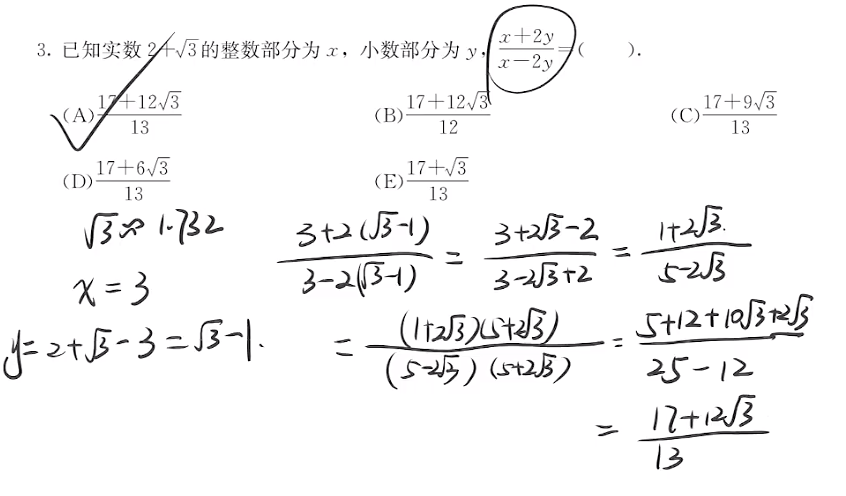 3. 已知实数 2+√3 的整数部分为 x，小数部分为 y，(x+2y)/(x−2y)=(　　).
(A) (17+12√3)/13　(B) (17+12√3)/12　(C) (17+9√3)/13
(D) (17+6√3)/13　(E) (17+√3)/13
√3≈1.732
x=3
y=2+√3−3=√3−1.
(3+2(√3−1))/(3−2(√3−1)) = (3+2√3−2)/(3−2√3+2) = (1+2√3)/(5−2√3)
= ((1+2√3)(5+2√3))/((5−2√3)(5+2√3)) = (5+12+10√3+2√3)/(25−12)
= (17+12√3)/13